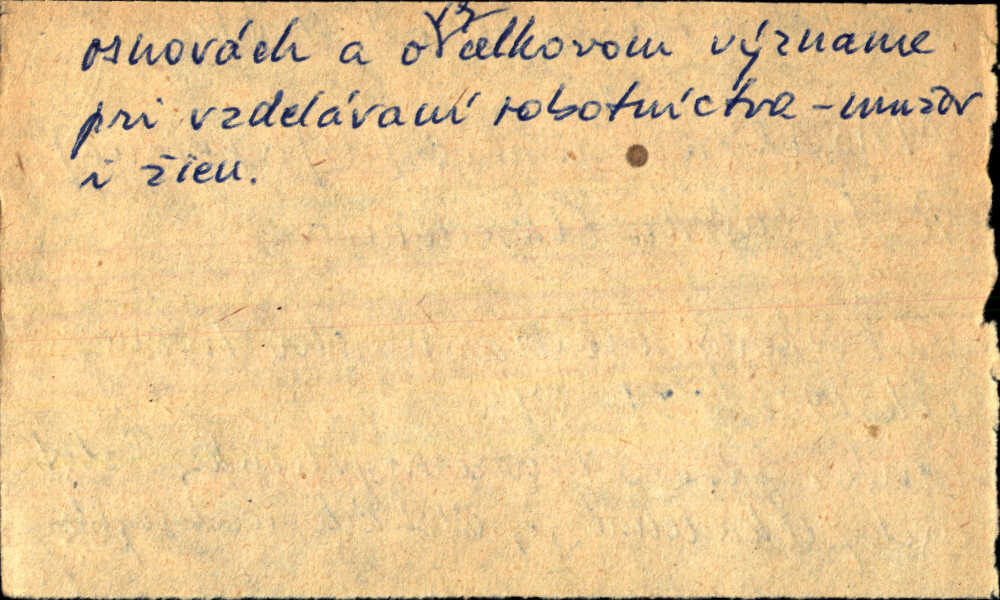 osnovách a o celkovom význame
pri vzdelávaní robotníctva – mužov
i žien.